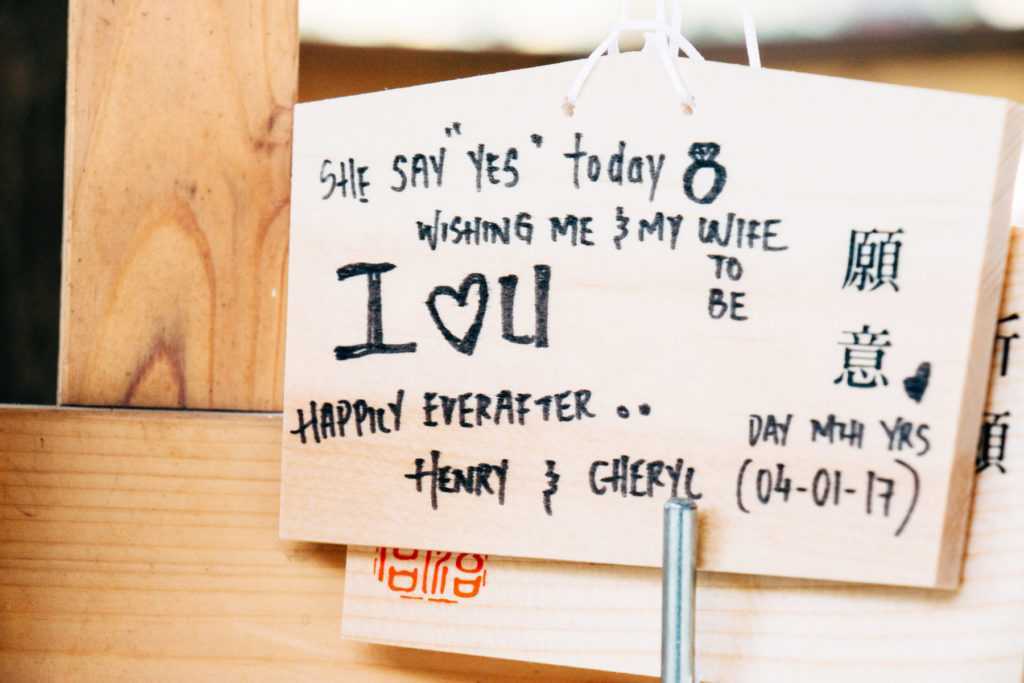 SHE SAY "YES" today
WISHING ME & MY WIFE
TO
BE
I ♥ U
HAPPILY EVERAFTER ..
HENRY & CHERYL
DAY MTH YRS
(04-01-17)
願意
願